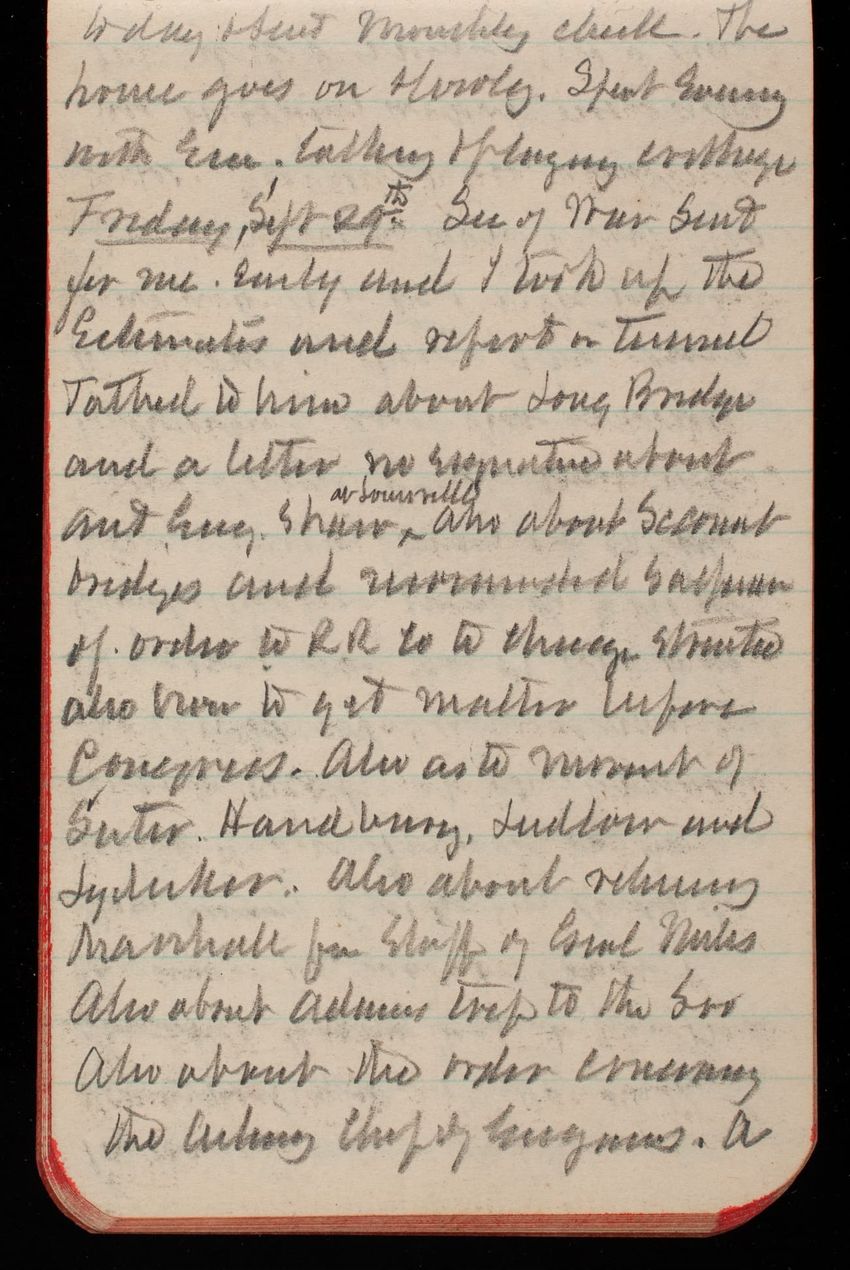 today & sent monthly check. The
house goes on slowly. Spent Evening
with Gen. talking & playing cribbage
Friday, Sept 29th Sec of War Sent
for me. Early and I took up the
Estimates and report on tunnel
Talked to him about Long Bridge
and a letter no signature about
Asst Eng. Shaw at Louisville, also about
bridges and recommended
of order to RR Co to change
also how to get matter before
Congress. Also as to movement of
Suter. Handbury, Ludlow and
Lydecker. Also about relieving
Marshall from Staff of Genl Miles
Also about Adams trip to the Soo
Also about the order concerning
the Acting Chief of Engineers. A